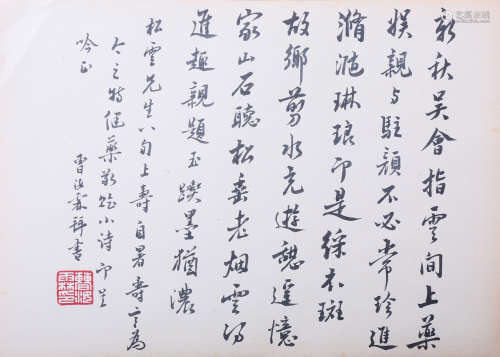 新秋吴會指雲间上藥
娱親与駐顔不必常珍進
滫瀡琳琅即是綵衣斑
故鄉剪水充遊憩遥憶
家山石聽松垂老烟雲得
進趣親題玉躞墨猶濃
松雲先生八旬上壽自署壽言為
令之特健藥敬賦小诗即呈
吟正
曹汝霖拜書